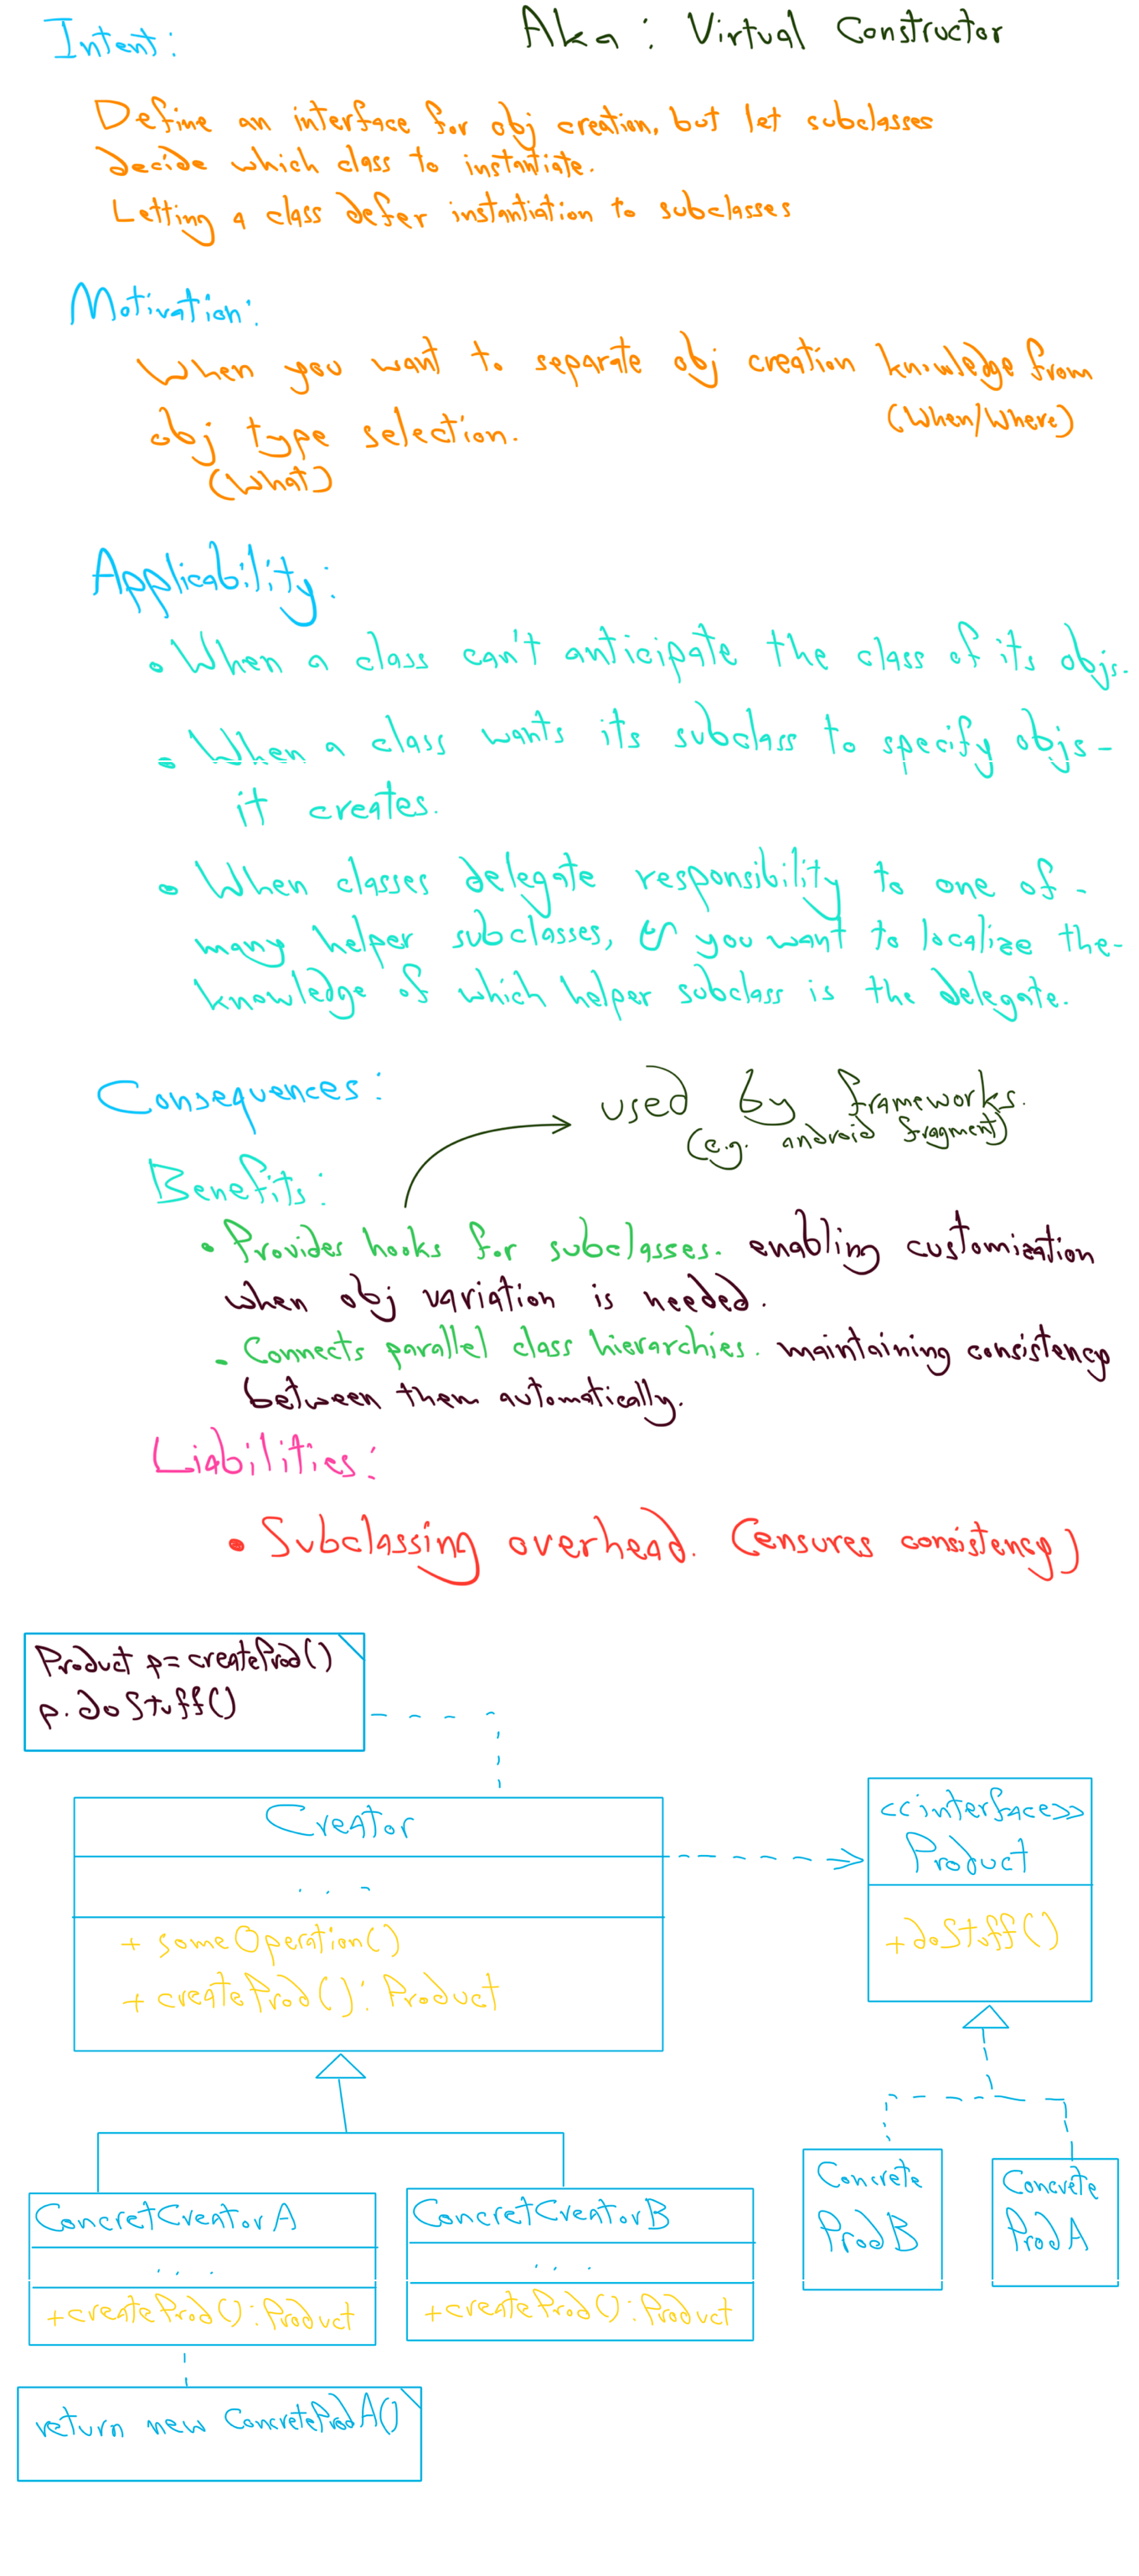 Intent:
Aka: Virtual Constructor
Define an interface for obj creation, but let subclasses
decide which class to instantiate.
Letting a class defer instantiation to subclasses
Motivation:
When you want to separate obj creation knowledge from
(When/Where)
obj type selection.
(What)
Applicability:
• When a class can't anticipate the class of its objs.
• When a class wants its subclass to specify objs-
it creates.
• When classes delegate responsibility to one of-
many helper subclasses, & you want to localize the-
knowledge of which helper subclass is the delegate.
Consequences:
used by frameworks.
(e.g. android fragment)
Benefits:
• Provides hooks for subclasses. enabling customization
when obj variation is needed.
• Connects parallel class hierarchies. maintaining consistency
between them automatically.
Liabilities:
• Subclassing overhead. (ensures consistency)
Product p = createProd()
p.doStuff()
Creator
...
+ someOperation()
+ createProd(): Product
<<interface>>
Product
+doStuff()
ConcretCreatorA
...
+createProd(): Product
ConcretCreatorB
...
+createProd(): Product
Concrete
ProdB
Concrete
ProdA
return new ConcreteProdA()